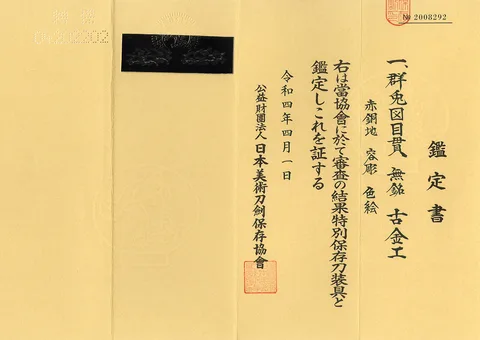 № 2008292
鑑定書
一、群兎図目貫 無銘 古金工
赤銅地 容彫 色絵
右は當協會に於て審査の結果特別保存刀装具と
鑑定しこれを証する
令和四年四月一日
公益財團法人 日本美術刀劍保存協會